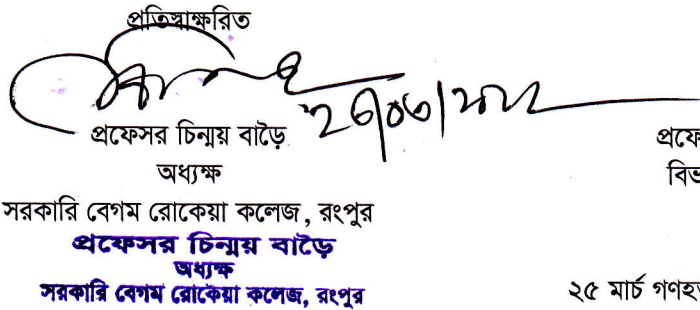 প্রতিস্বাক্ষরিত
প্রফেসর চিন্ময় বাড়ৈ
অধ্যক্ষ
সরকারি বেগম রোকেয়া কলেজ, রংপুর
প্রফেসর চিন্ময় বাড়ৈ
অধ্যক্ষ
সরকারি বেগম রোকেয়া কলেজ, রংপুর
২৫ মার্চ